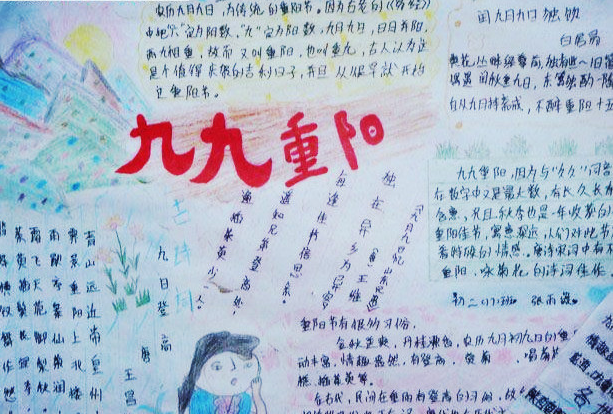 农历九月九日,为传统的重阳节。因为古老的《易经》
中把"六"定为阴数,"九"定为阳数,九月九日,日月并阳,
两九相重,故而又叫重阳,也叫重九,古人认为这
是个值得庆贺的吉利日子,并且从很早就开始
过重阳节。
闰九月九日独饮
白居易
自从九月持斋戒,不醉重阳十五
九九重阳
九九重阳,因为与"久久"同音
在数字中又是最大数,有长久长
含意,况且秋季也是一年收获的
重阳佳节,寓意深远,人们对此节
着特殊的情感。唐诗宋词中有不
重阳,咏菊花的诗词佳作
初二(1)班 张雨
《九月九日忆山东兄弟》
(唐)王维
独在异乡为异客
每逢佳节倍思亲。
遥知兄弟登高处,
遍插茱萸少一人。
古诗词
九日登高
唐 王昌
青山远近带皇州
霁景重阳上北楼
雨歇亭皋仙菊润
霜飞天苑御梨秋
茱萸插鬓花宜寿
重阳节有很多习俗。
金秋送爽,丹桂飘香,农历九月初九日的重
动丰富,情趣盎然,有登高、赏菊、喝菊
糕、插茱萸等。
在古代,民间在重阳有登高的习俗,故